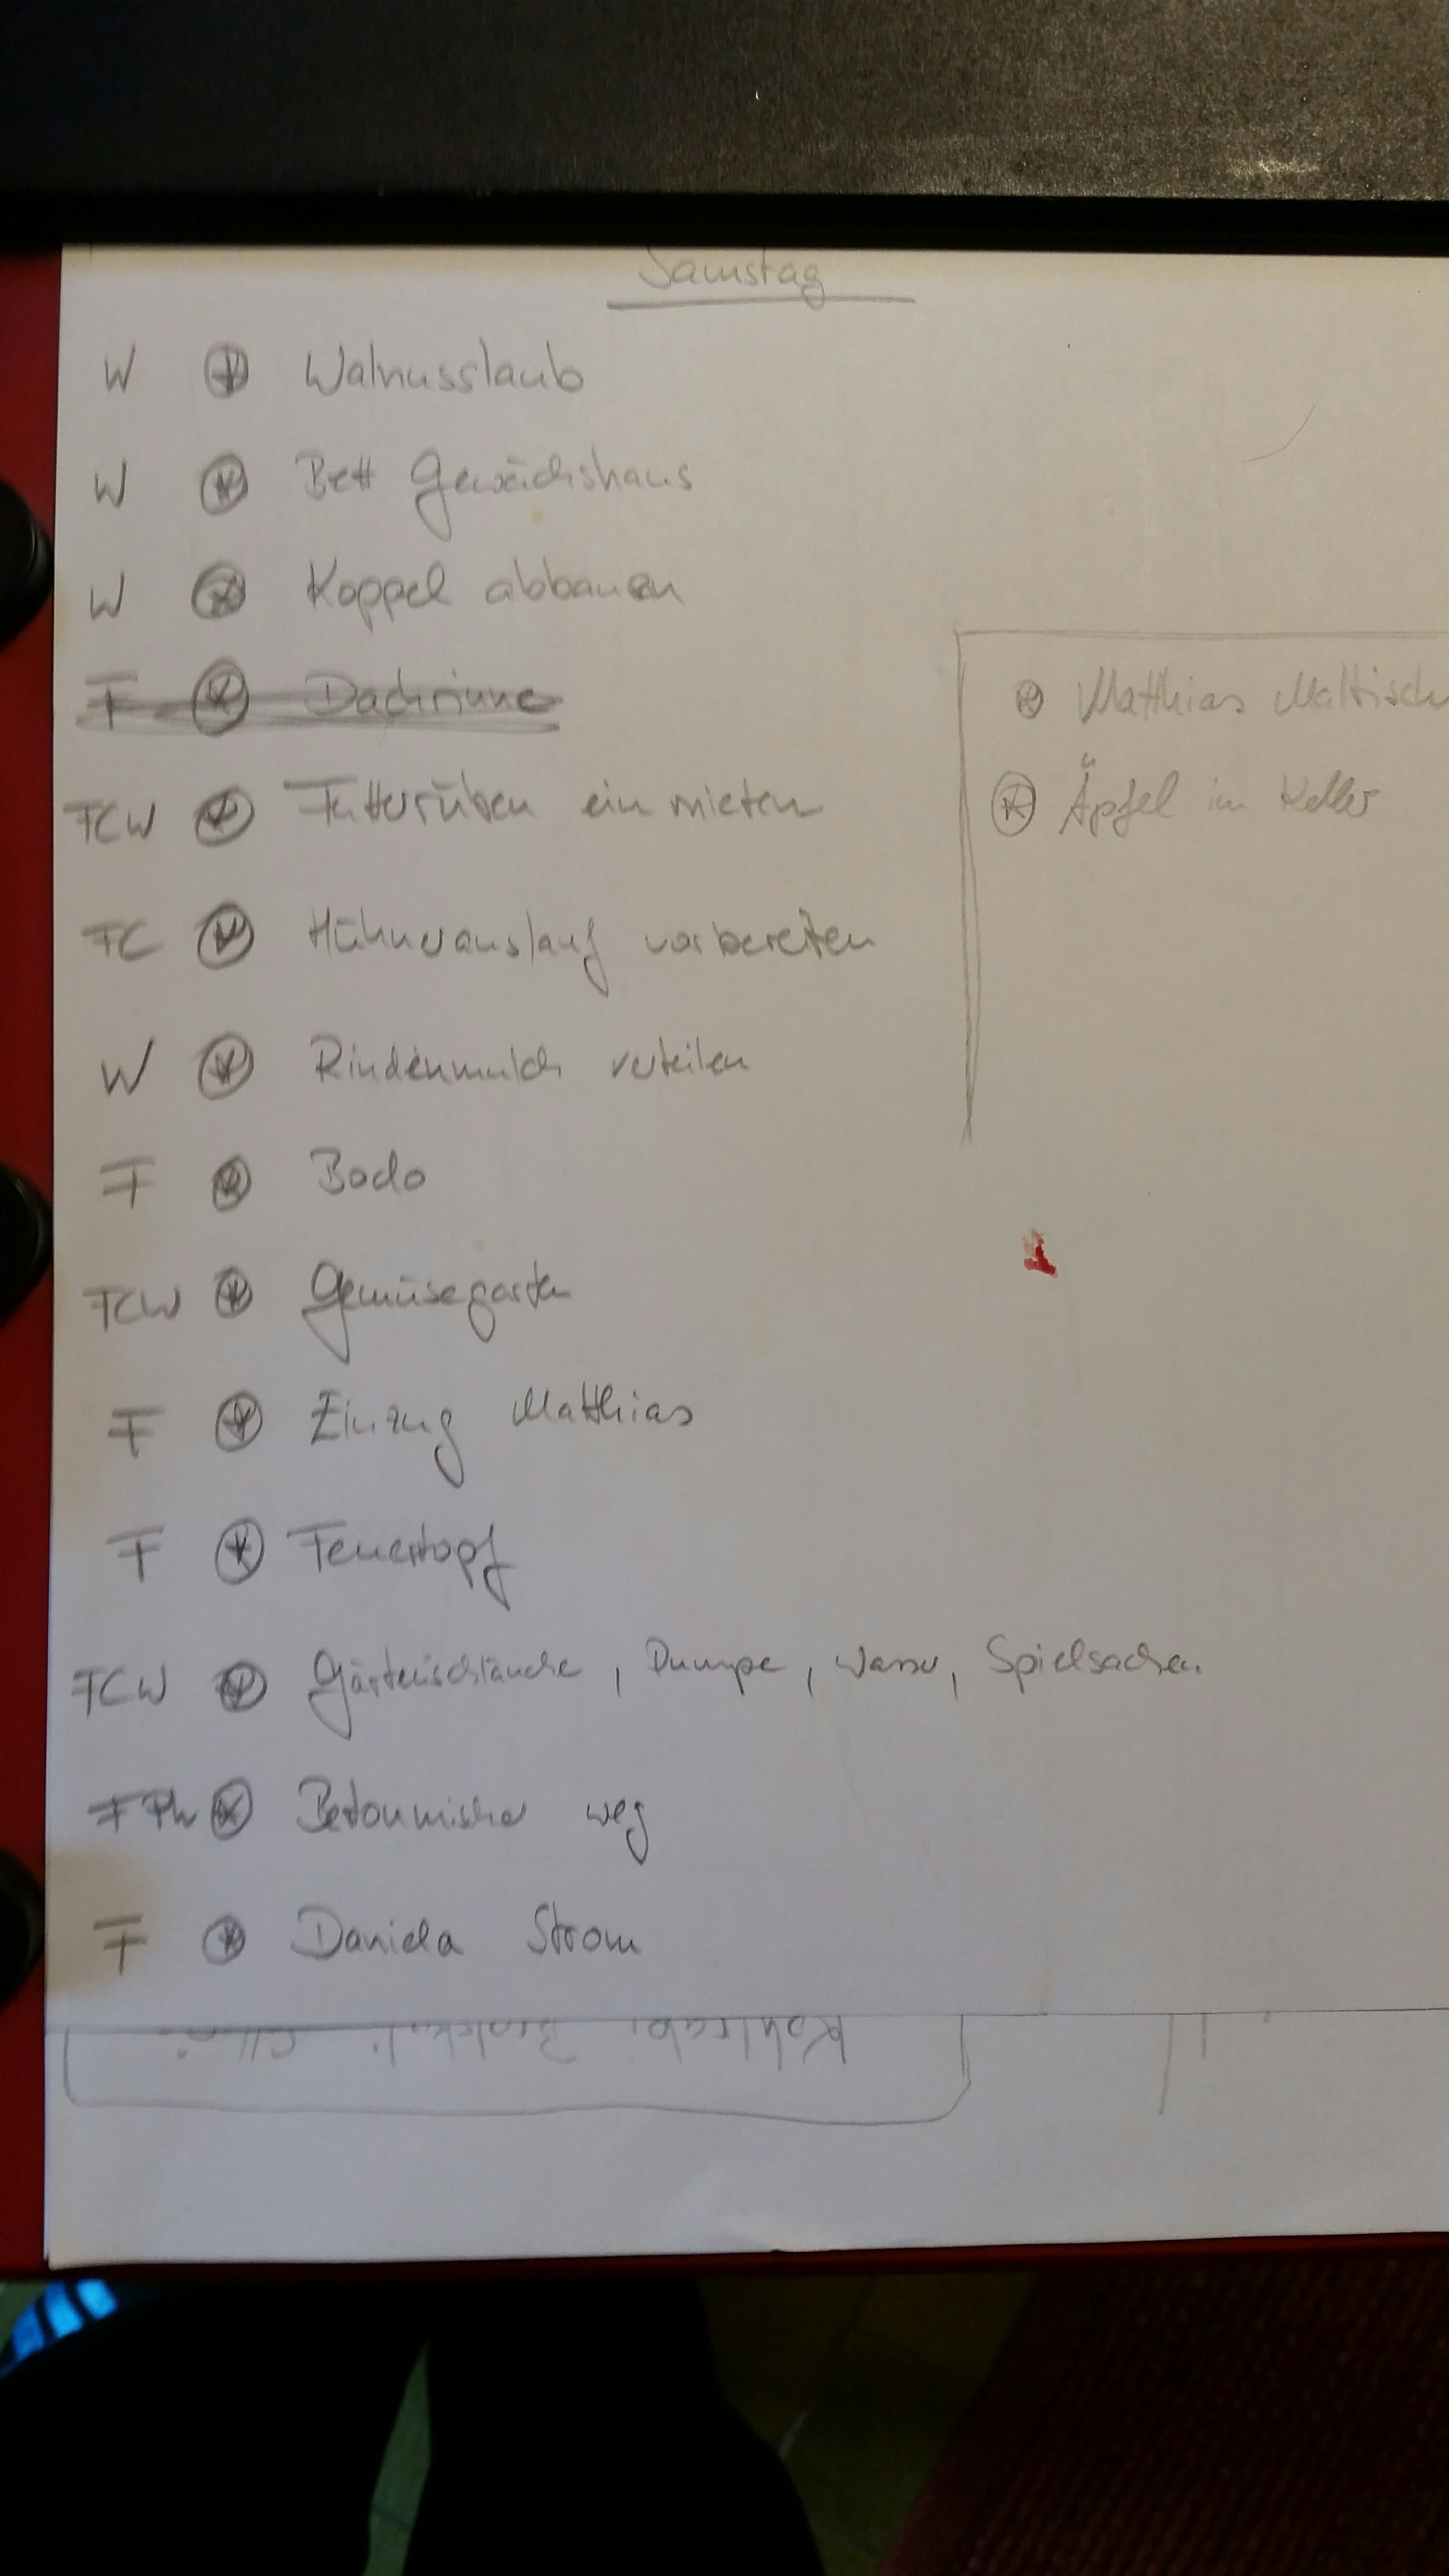 Samstag
W Walnusslaub
W Bett Gewächshaus
W Koppel abbauen
F Dachrinne
FCW Futterrüben ein mieten
FC Hühnerauslauf vorbereiten
W Rindenmulch verteilen
F Bodo
FCW Gemüsegarten
F Einzug Matthias
F Feuertopf
FCW Gartenschläuche, Pumpe, Wasser, Spielsachen
F Ph Betonmischer weg
F Daniela Strom
Matthias
Äpfel in Keller